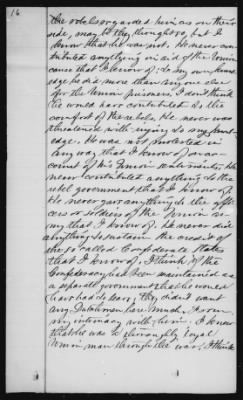 16
the rebels regarded him as on their
side, may be they thought so, but I
know that he was not. He never con-
tributed anything in aid of the Union
cause that I know of; to my own know-
ledge he did more than anyone else
for the Union prisoners, I don't think
he would have contributed to the
comfort of the rebels. He never was
threatened with injury to my knowl-
edge. He was not molested in
any way that I know of on ac-
count of his Union sentiments; He
never contributed anything to the
rebel government that I know of.
He never gave anything to the offi-
cers or soldiers of the Union ar-
my that I know of. He never did
anything to sustain the credit of
the so called Confederate States
that I know of. I think if the
Confederacy had been maintained as
a separate government that he would
have had to leave; they didn't want
any Dutchmen here much. From
my intimacy with him, I know
that he was a thoroughly loyal
Union man through the war, I think